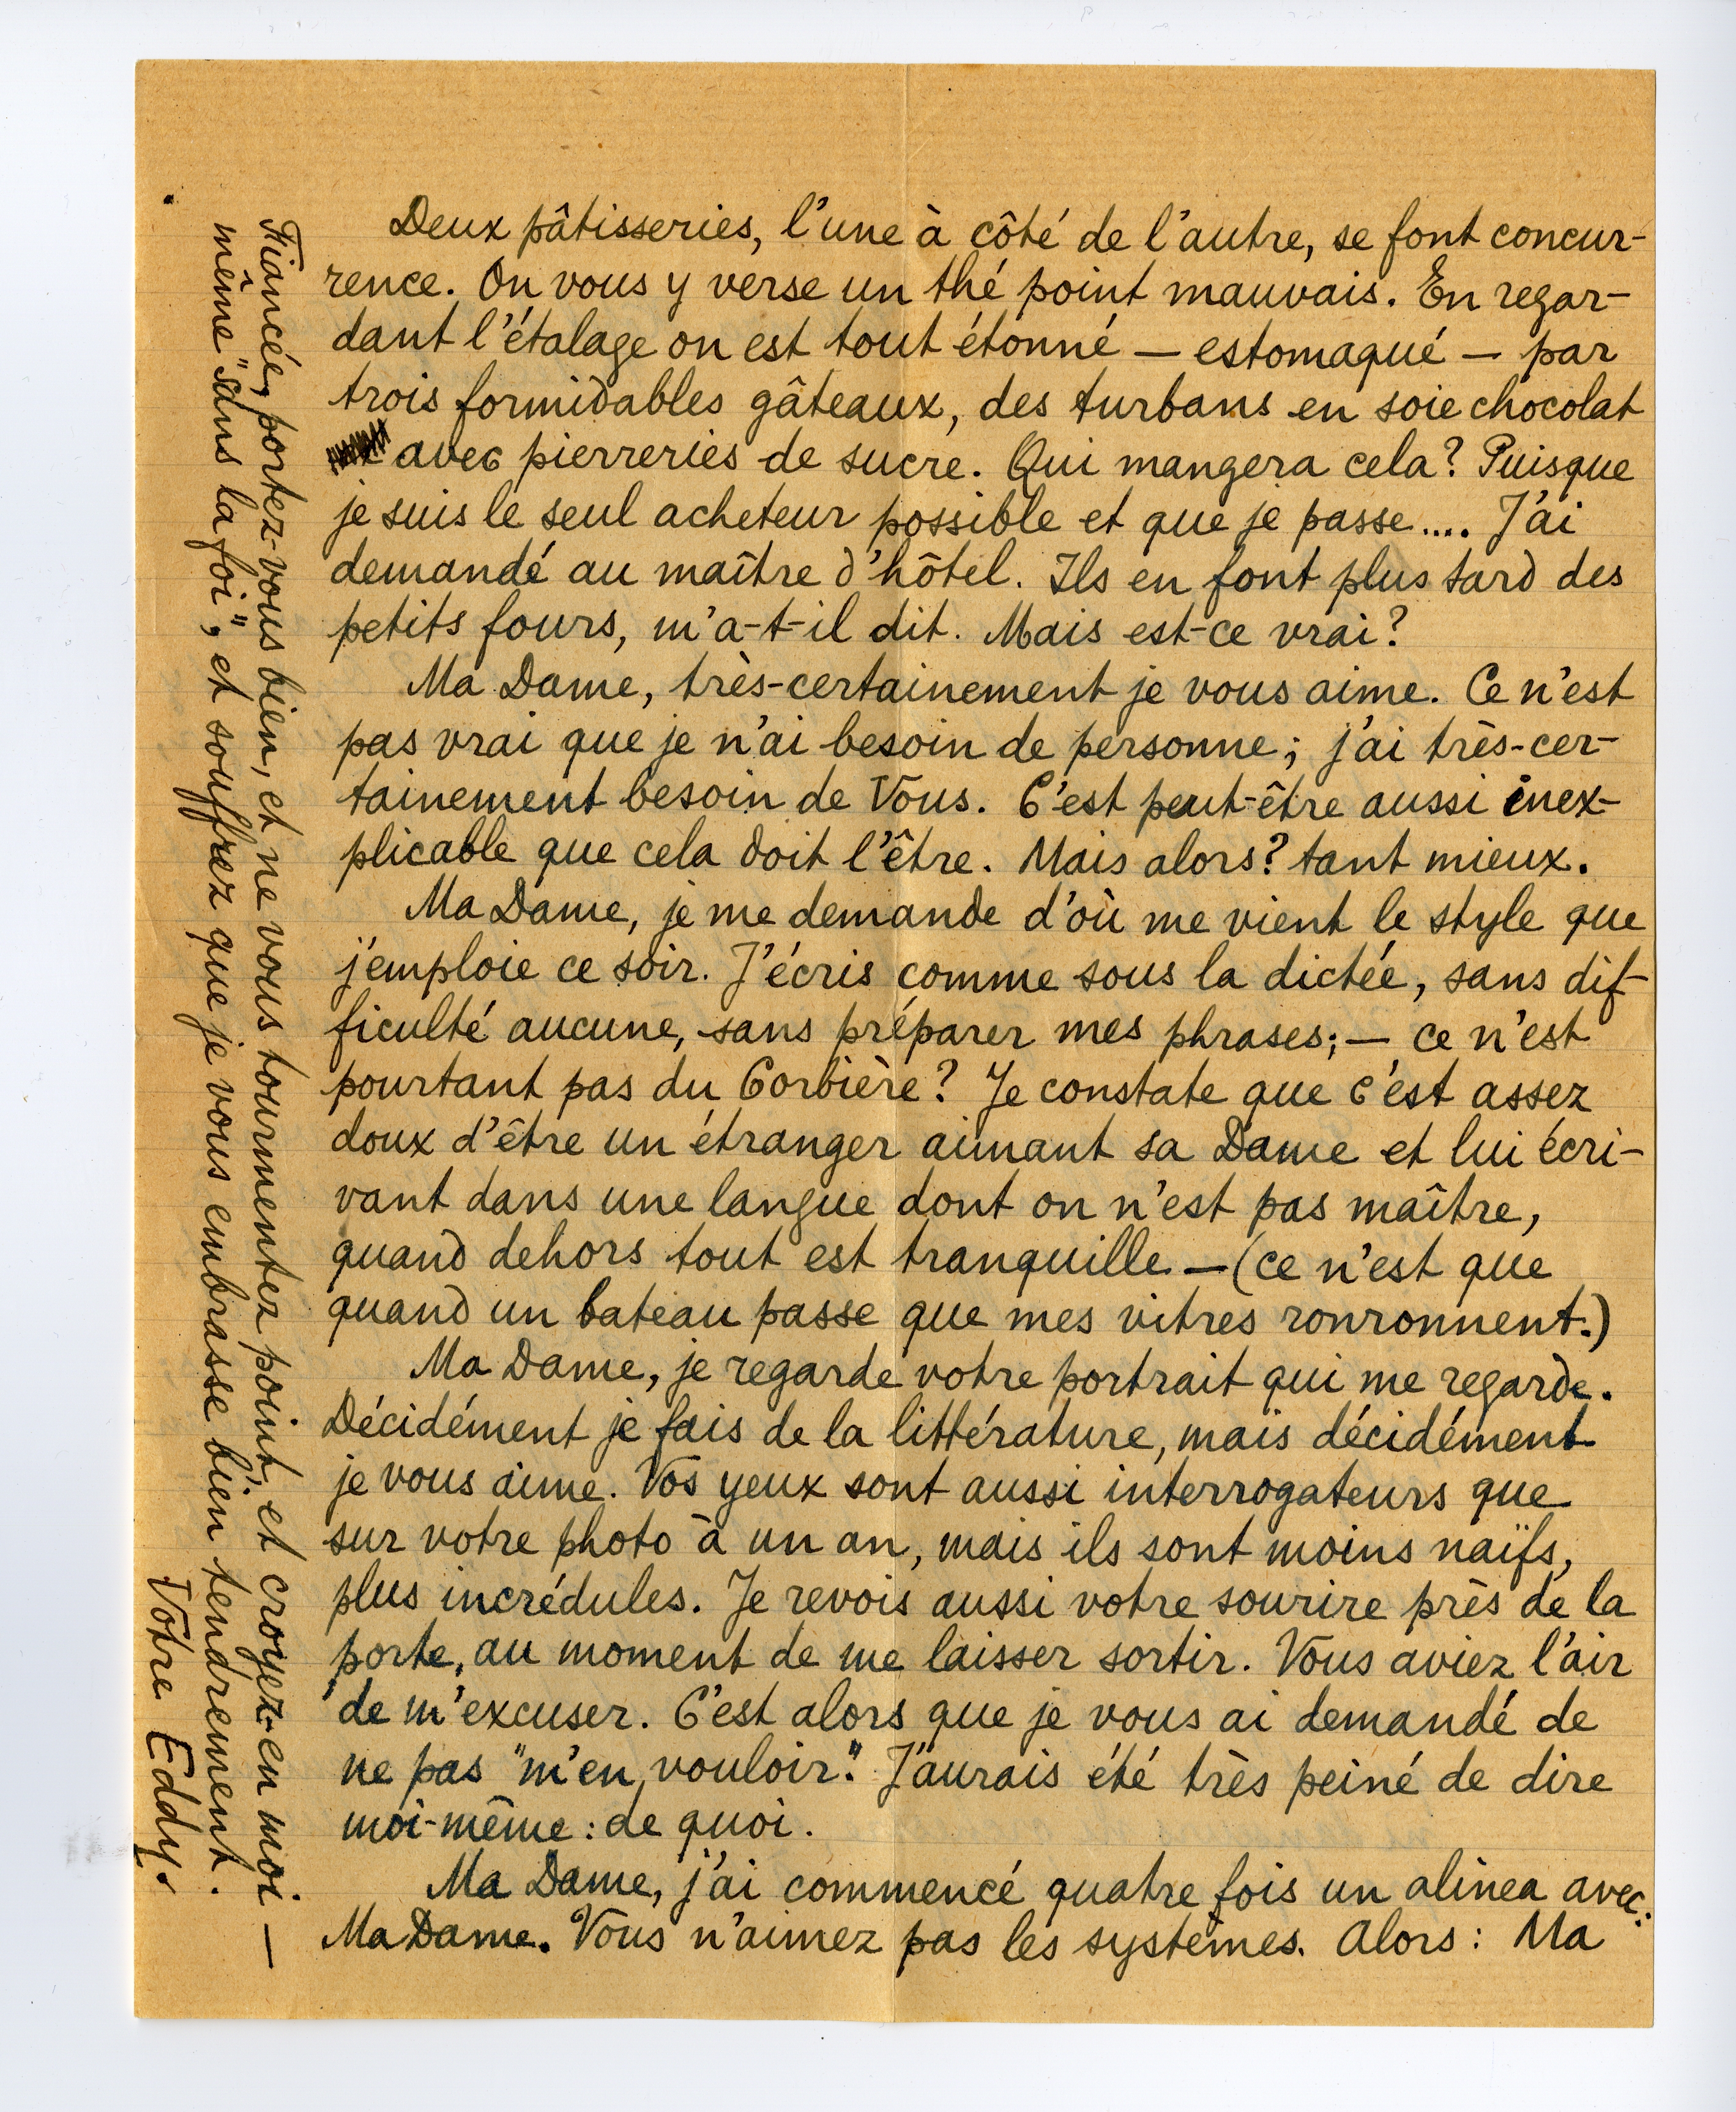 Deux pâtisseries, l'une à côté de l'autre, se font concur-
rence. On vous y verse un thé point mauvais. En regar-
dant l'étalage on est tout étonné — estomaqué — par
trois formidables gâteaux, des turbans en soie chocolat
avec pierreries de sucre. Qui mangera cela? Puisque
je suis le seul acheteur possible et que je passe.... J'ai
demandé au maître d'hôtel. Ils en font plus tard des
petits fours, m'a-t-il dit. Mais est-ce vrai?
Ma Dame, très-certainement je vous aime. Ce n'est
pas vrai que je n'ai besoin de personne; j'ai très-cer-
tainement besoin de Vous. C'est peut-être aussi inex-
plicable que cela doit l'être. Mais alors? tant mieux.
Ma Dame, je me demande d'où me vient le style que
j'emploie ce soir. J'écris comme sous la dictée, sans dif-
ficulté aucune, sans préparer mes phrases; — ce n'est
pourtant pas du Corbière? Je constate que c'est assez
doux d'être un étranger aimant sa Dame et lui écri-
vant dans une langue dont on n'est pas maître,
quand dehors tout est tranquille — (ce n'est que
quand un bateau passe que mes vitres ronronnent.)
Ma Dame, je regarde votre portrait qui me regarde.
Décidément je fais de la littérature, mais décidément
je vous aime. Vos yeux sont aussi interrogateurs que
sur votre photo à un an, mais ils sont moins naïfs,
plus incrédules. Je revois aussi votre sourire près de la
porte, au moment de me laisser sortir. Vous aviez l'air
de m'excuser. C'est alors que je vous ai demandé de
ne pas "m'en vouloir". J'aurais été très peiné de dire
moi-même: de quoi.
Ma Dame, j'ai commencé quatre fois un alinea avec:
Ma Dame. Vous n'aimez pas les systèmes. Alors: Ma
Fiancée, portez-vous bien, et ne vous tourmentez point, et croyez-en moi —
même "sans la foi", et souffrez que je vous embrasse bien tendrement.
Votre Eddy.